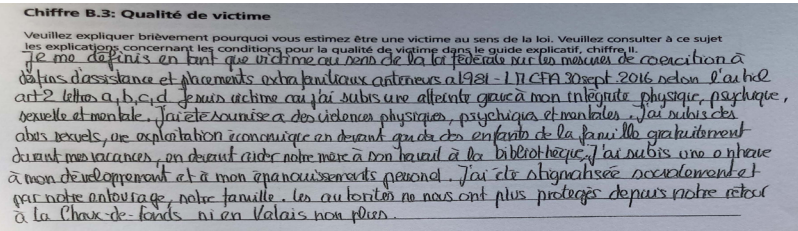 Chiffre B.3: Qualité de victime
Veuillez expliquer brièvement pourquoi vous estimez être une victime au sens de la loi. Veuillez consulter à ce sujet
les explications concernant les conditions pour la qualité de victime dans le guide explicatif, chiffre II.
Je me définis en tant que victime au sens de la loi fédérale sur les mesures de coercition à
des fins d'assistance et placements extrafamiliaux antérieurs à 1981 - LMCFA 30 sept. 2016 selon l'article
art 2 lettres a, b, c, d Je suis victime car j'ai subis une atteinte grave à mon intégrité physique, psychique,
sexuelle et mentale. J'ai été soumise a des violences physiques, psychiques et mentales. J'ai subis des
abus sexuels, une exploitation économique en devant garder des enfants de la famille gratuitement
durant mes vacances, en devant aider notre mère à son travail à la bibliothèque. J'ai subis une entrave
à mon développement et à mon épanouissements personel. J'ai été stigmatisée socialement et
par notre entourage, notre famille. Les autorités ne nous ont plus protégés depuis notre retour
à la Chaux-de-fonds ni en Valais non plus.